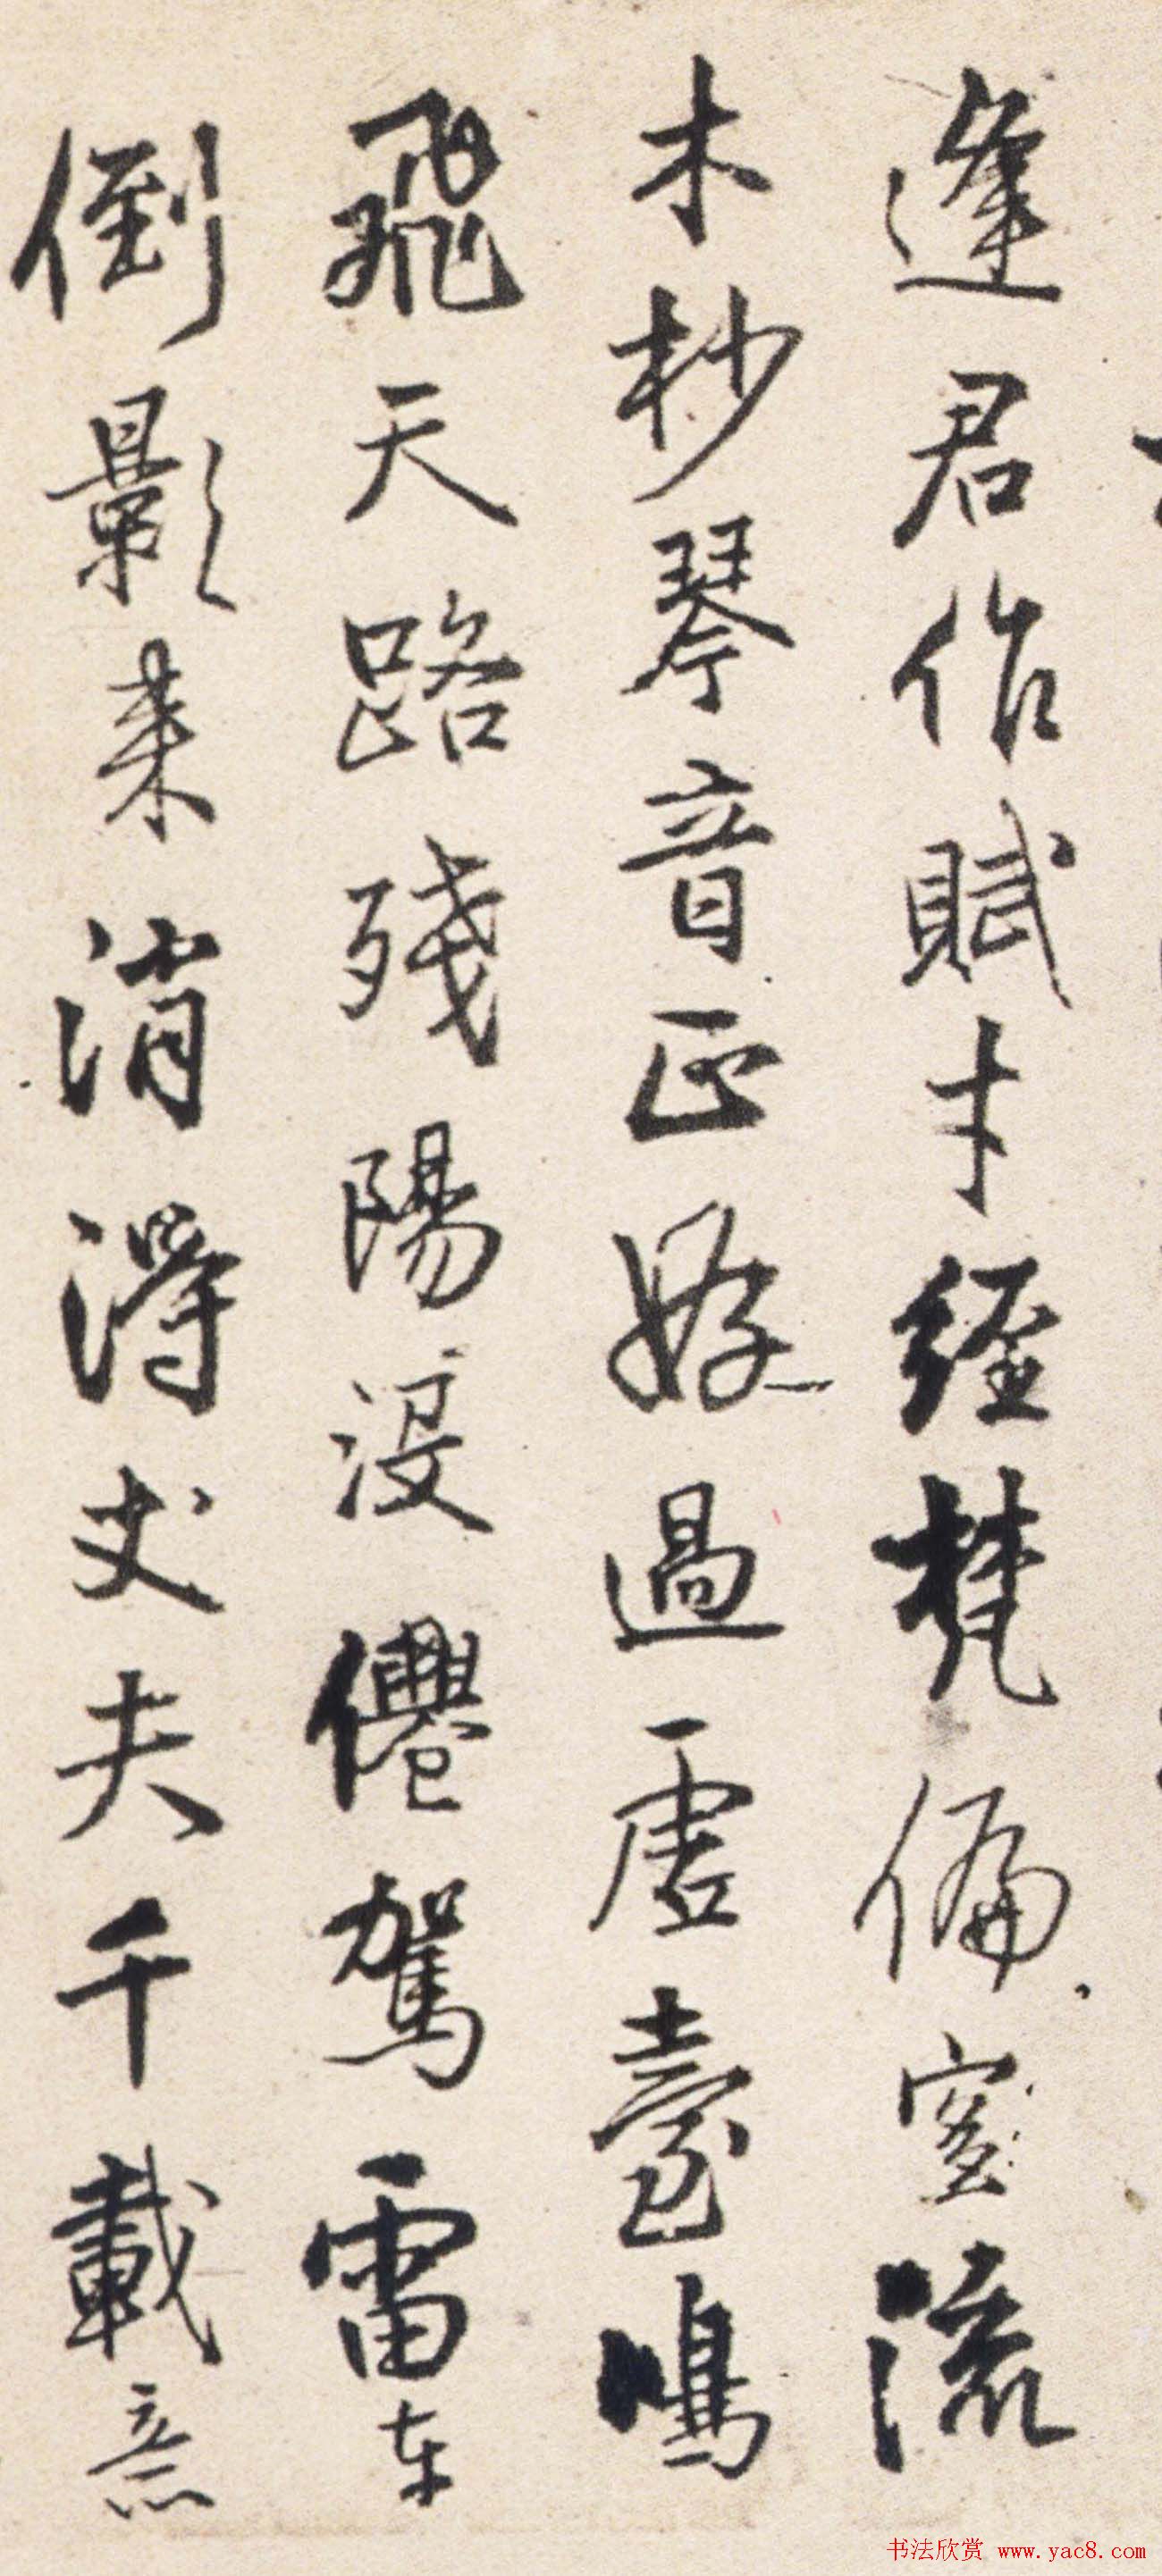 逢君作賦才經梵偏宜流
木杪琴音正好過虛臺鳴
飛天路殘陽沒僊駕雷車
倒影來消得丈夫千載意
书法欣赏 www.yac8.com